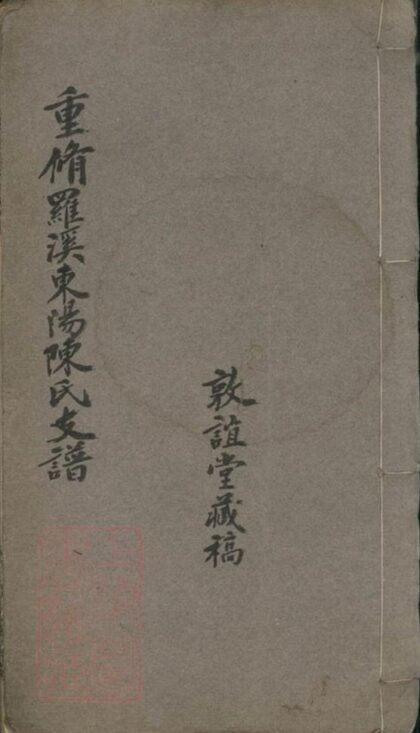 敦誼堂藏稿
重脩羅溪東陽陳氏支譜